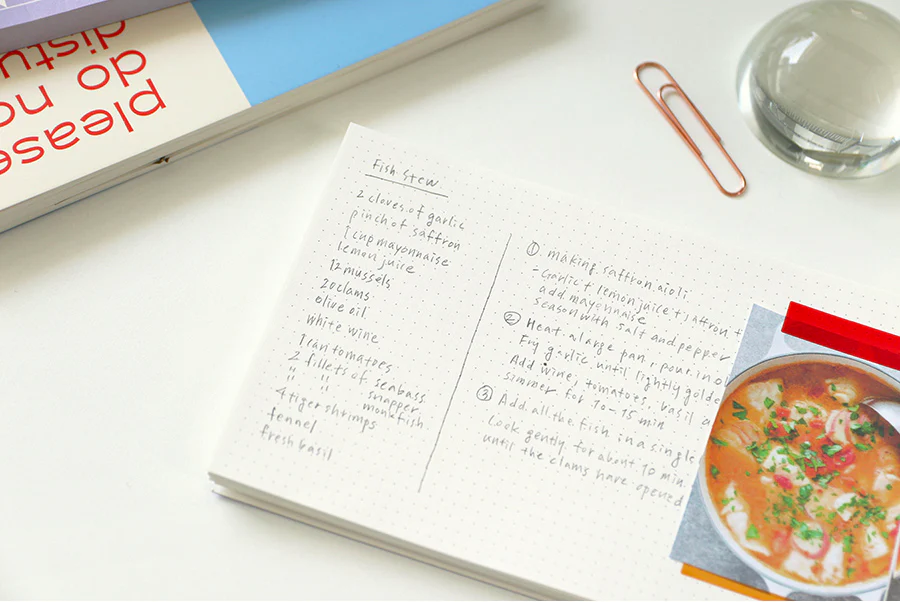 please
do no
distu
Fish stew
2 cloves of garlic
pinch of saffron
1 cup mayonnaise
lemon juice
12 mussels
20 clams
olive oil
white wine
1 can tomatoes
2 fillets of seabass
" " snapper
" " monkfish
4 tiger shrimps
fennel
fresh basil
① making saffron aioli
- Garlic + lemon juice + saffron +
add mayonnaise
season with salt and pepper
② Heat a large pan, pour in o
Fry garlic until lightly golde
Add wine, tomatoes, basil a
simmer for 10-15 min
③ Add all the fish in a single
Cook gently for about 10 min.
until the clams have opened